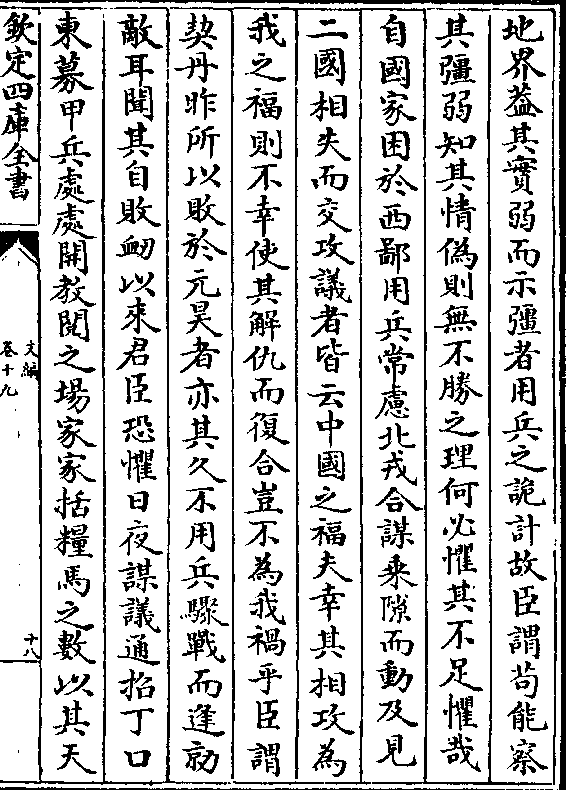 地界葢其實弱而示彊者用兵之詭計故臣謂茍能察
其彊弱知其情僞則無不勝之理何必懼其不足懼哉
自國家困於西鄙用兵常慮北戎合謀乗隙而動及見
二國相失而交攻議者皆云中國之福夫幸其相攻為
我之福則不幸使其解仇而復合豈不為我禍乎臣謂
契丹昨所以敗於元昊者亦其久不用兵驟戰而逢勍
敵耳聞其自敗衂以來君臣恐懼日夜謀議通招丁口
東募甲兵處處開教閲之場家家括糧馬之數以其天
欽定四庫全書
文編
卷十九
十八